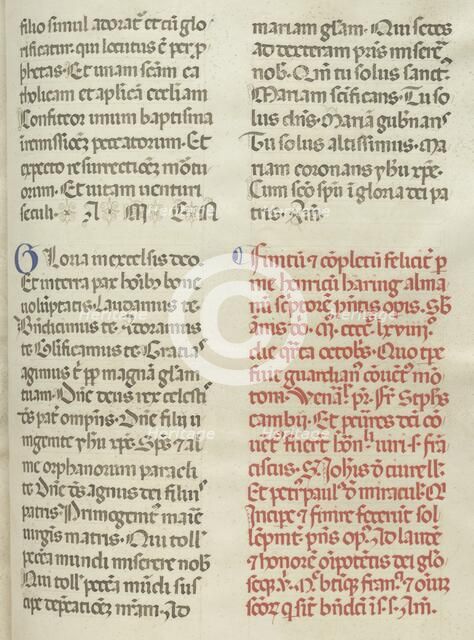 filio simul adorat᷒ et cū glo
rificatur. qui locutus ē per p̄ro
phetas. Et unam scām ca
tholicam et aplicā eccliam
Confiteor unum baptisma
ī remissionē peccatorum. Et
expecto resurrectionē mortu
orum. Et uitam uenturi
seculi. A M E N
Gloria in excelsis deo.
Et in terra pax hoībꝫ bone
uoluntatis. Laudamus te
Bn̄dicimus te. Adoramus
te. Glorificamus te. Gratias
agimus t̄ pp̄ magnā glām
tuam. Dn̄e deus rex celestis
d̄s pat᷒ omp̄ns. Dn̄e filii u
nigenite yhū xp̄e. Sp̄s & al
me orphanorum paracli
te. Dn̄e d̄s agnus dei filiꝰ
patris. Primogenitꝰ marīe
uirgīs matris. Qui toll᷒
peccā mundi miserere nob᷒
Qui toll᷒ peccā mūdi sus
cipe dep̄cationē nr̄am. Ad
mariam glām. Qui sedes
ad dexteram prīs miserere
nob᷒. Qm̄ tu solus sanctꝰ
Mariam scīficans. Tu so
lus dn̄s. Mariā gubn̄ans
Tu solus altissimus. Ma
riam coronans yhū xp̄e.
Cum scō sp̄u ī gloria dei pa
tris. Am̄.
Finitū & cōpletū feliciter p̄
me henricū haring alma
nū scp̄torē p̄ntis opis. Sb᷒
ānis dn̄i. M. cccc. lxviiij.
die qrta octobs̄. Quo tp̄e
fuit guardianꝰ cōuētꝰ mō
tom̄. Venal᷒ pr̄. Fr̄ Steph̄s
cambii. Et p̄res dei cō
uētꝰ fuerūt
ciscus. S. Johīs d̄
Et petrꝰ paulꝰ d̄ miraculꝰ.
Incipe & finire fecerūt sol
lēpnit᷒ p̄ns opꝰ. Ad laudē
& honorē oīpotētis dei glō